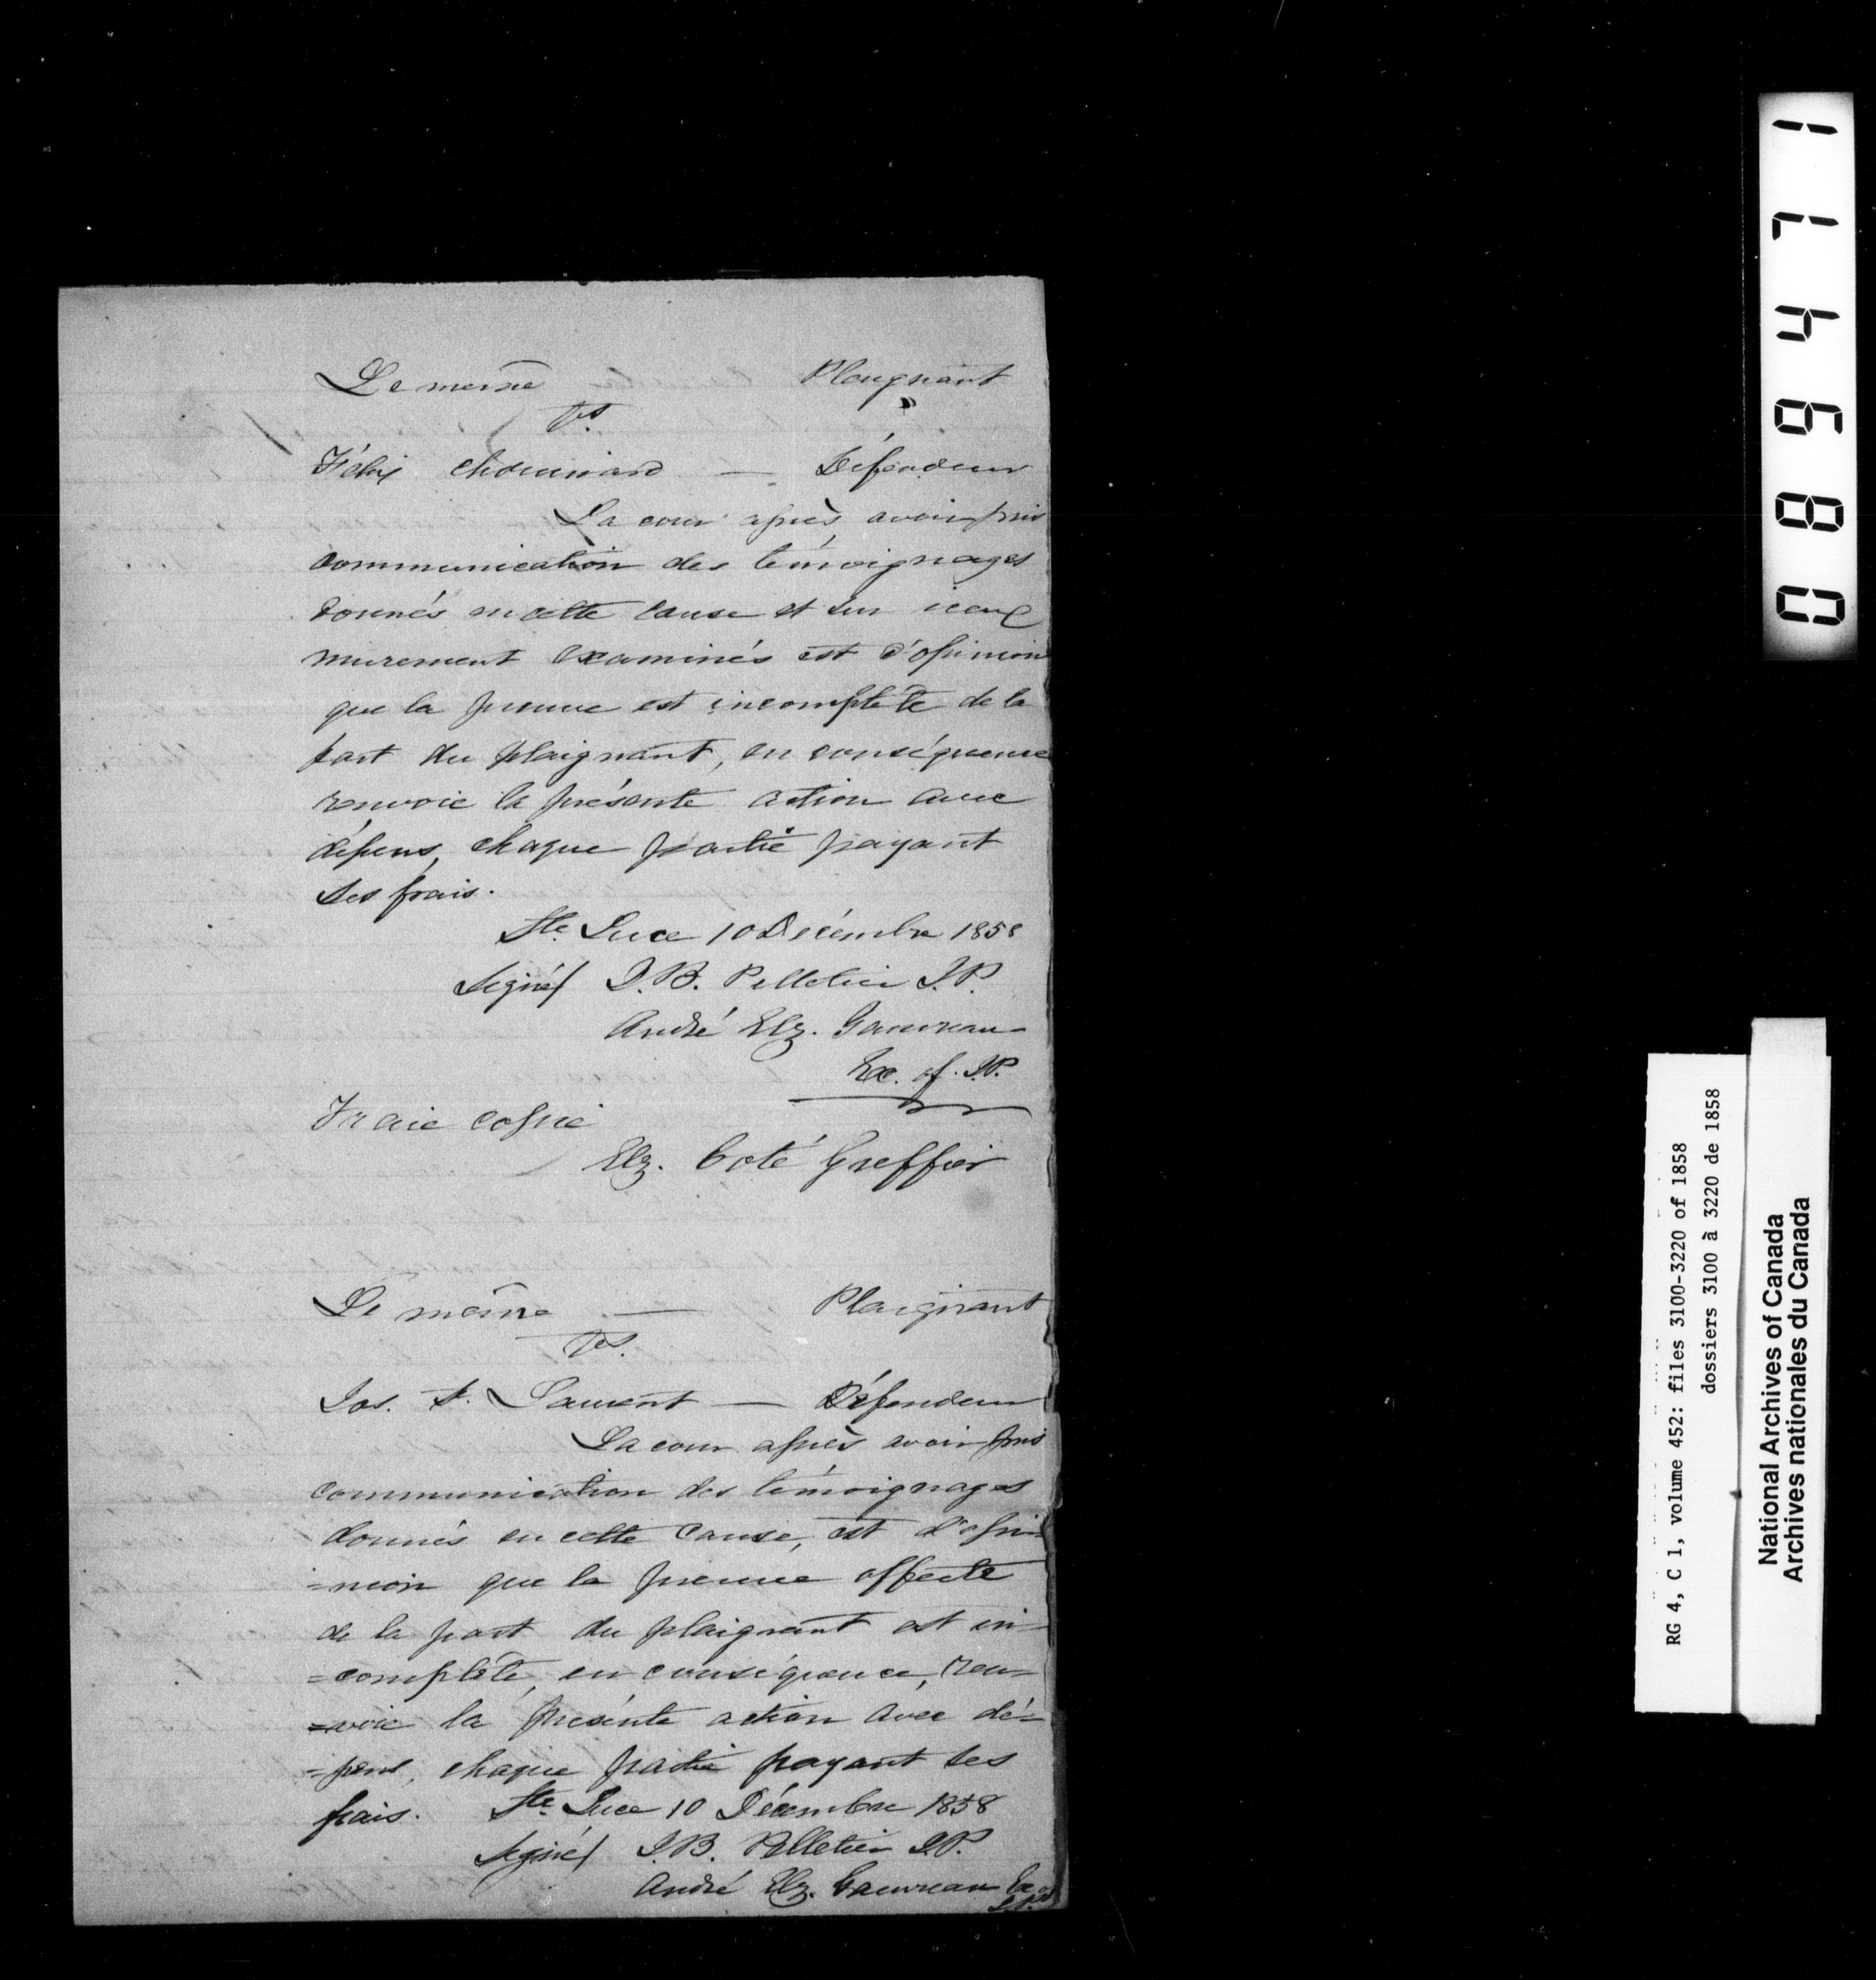 Le même Plaignant
Vs.
Félix Chouinard — Défendeur
La cour après avoir pris
communication des témoignages
donnés en cette cause et sur iceux
murement examinés est d'opinion
que la preuve est incomplète de la
part du plaignant, en conséquence
renvoie la présente action avec
dépens, chaque partie payant
ses frais.
Ste. Luce 10 Décembre 1858
Signé/ J.B. Pelletier J.P.
André Elz. Gauvreau
Ex. of. J.P.
Vraie copie
Elz. Coté Greffier
Le même — Plaignant
Vs.
Jos. St. Laurent — Défendeur
La cour après avoir pris
communication des témoignages
donnés en cette cause, est d'opi-
=nion que la preuve offerte
de la part du plaignant est in-
=complète, en conséquence, ren-
=voie la présente action avec dé-
=pens, chaque partie payant ses
frais. Ste. Luce 10 Décembre 1858
Signé/ J.B. Pelletier J.P.
André Elz. Gauvreau Ex of
J.P.
089471
RG 4, C 1, volume 452: files 3100-3220 of 1858
dossiers 3100 à 3220 de 1858
National Archives of Canada
Archives nationales du Canada